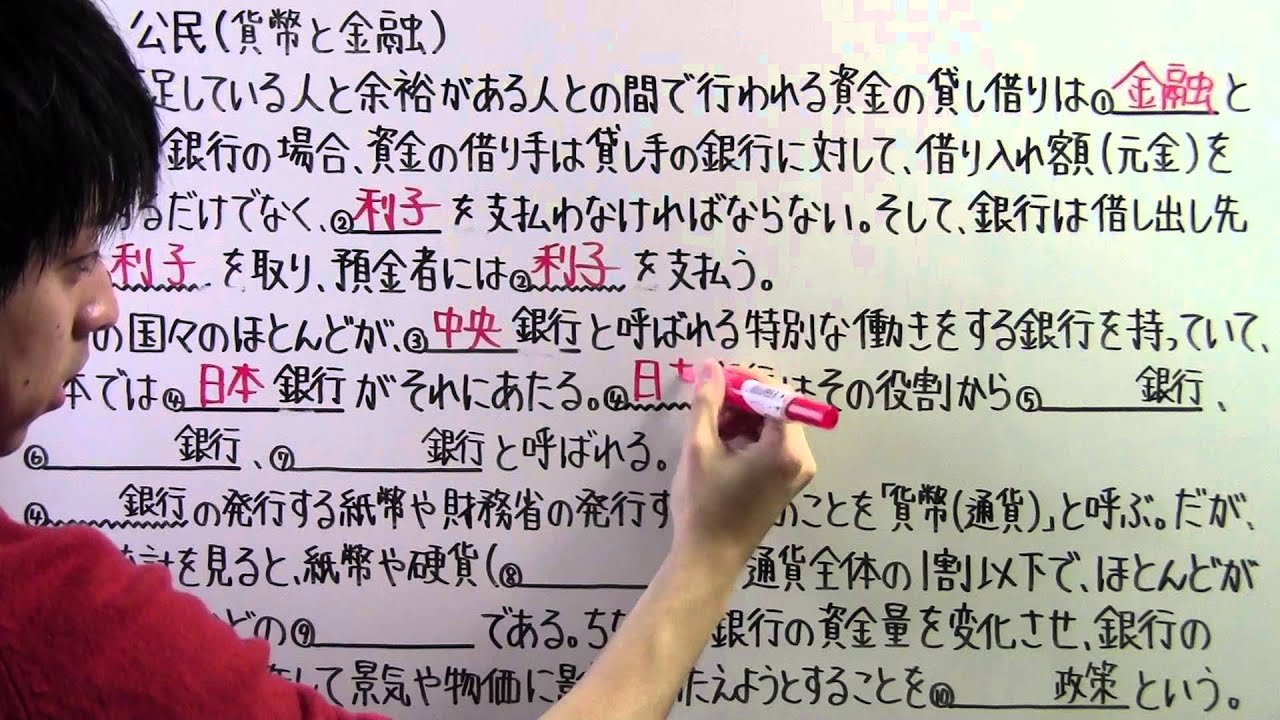 公民(貨幣と金融)
足している人と余裕がある人との間で行われる資金の貸し借りは①金融と
銀行の場合、資金の借り手は貸し手の銀行に対して、借り入れ額(元金)を
るだけでなく、②利子を支払わなければならない。そして、銀行は借し出し先
利子を取り、預金者には②利子を支払う。
の国々のほとんどが、③中央銀行と呼ばれる特別な働きをする銀行を持っていて、
本では④日本銀行がそれにあたる。④日 はその役割から⑤ 銀行、
⑥ 銀行、⑦ 銀行と呼ばれる。
④ 銀行の発行する紙幣や財務省の発行す のことを「貨幣(通貨)」と呼ぶ。だが、
計を見ると、紙幣や硬貨(⑧ 通貨全体の1割以下で、ほとんどが
どの⑨ である。ち 銀行の資金量を変化させ、銀行の
して景気や物価に影 たえようとすることを⑩ 政策という。